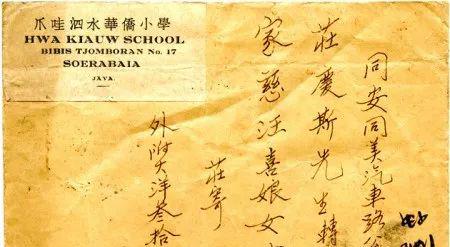 爪哇泗水華僑小學
HWA KIAUW SCHOOL
BIBIS TJOMBORAN No. 17
SOERABAIA
JAVA.
同安同美汽車路
莊慶斯先生轉
家慈汪喜娘女
莊寄
外附大洋叁拾